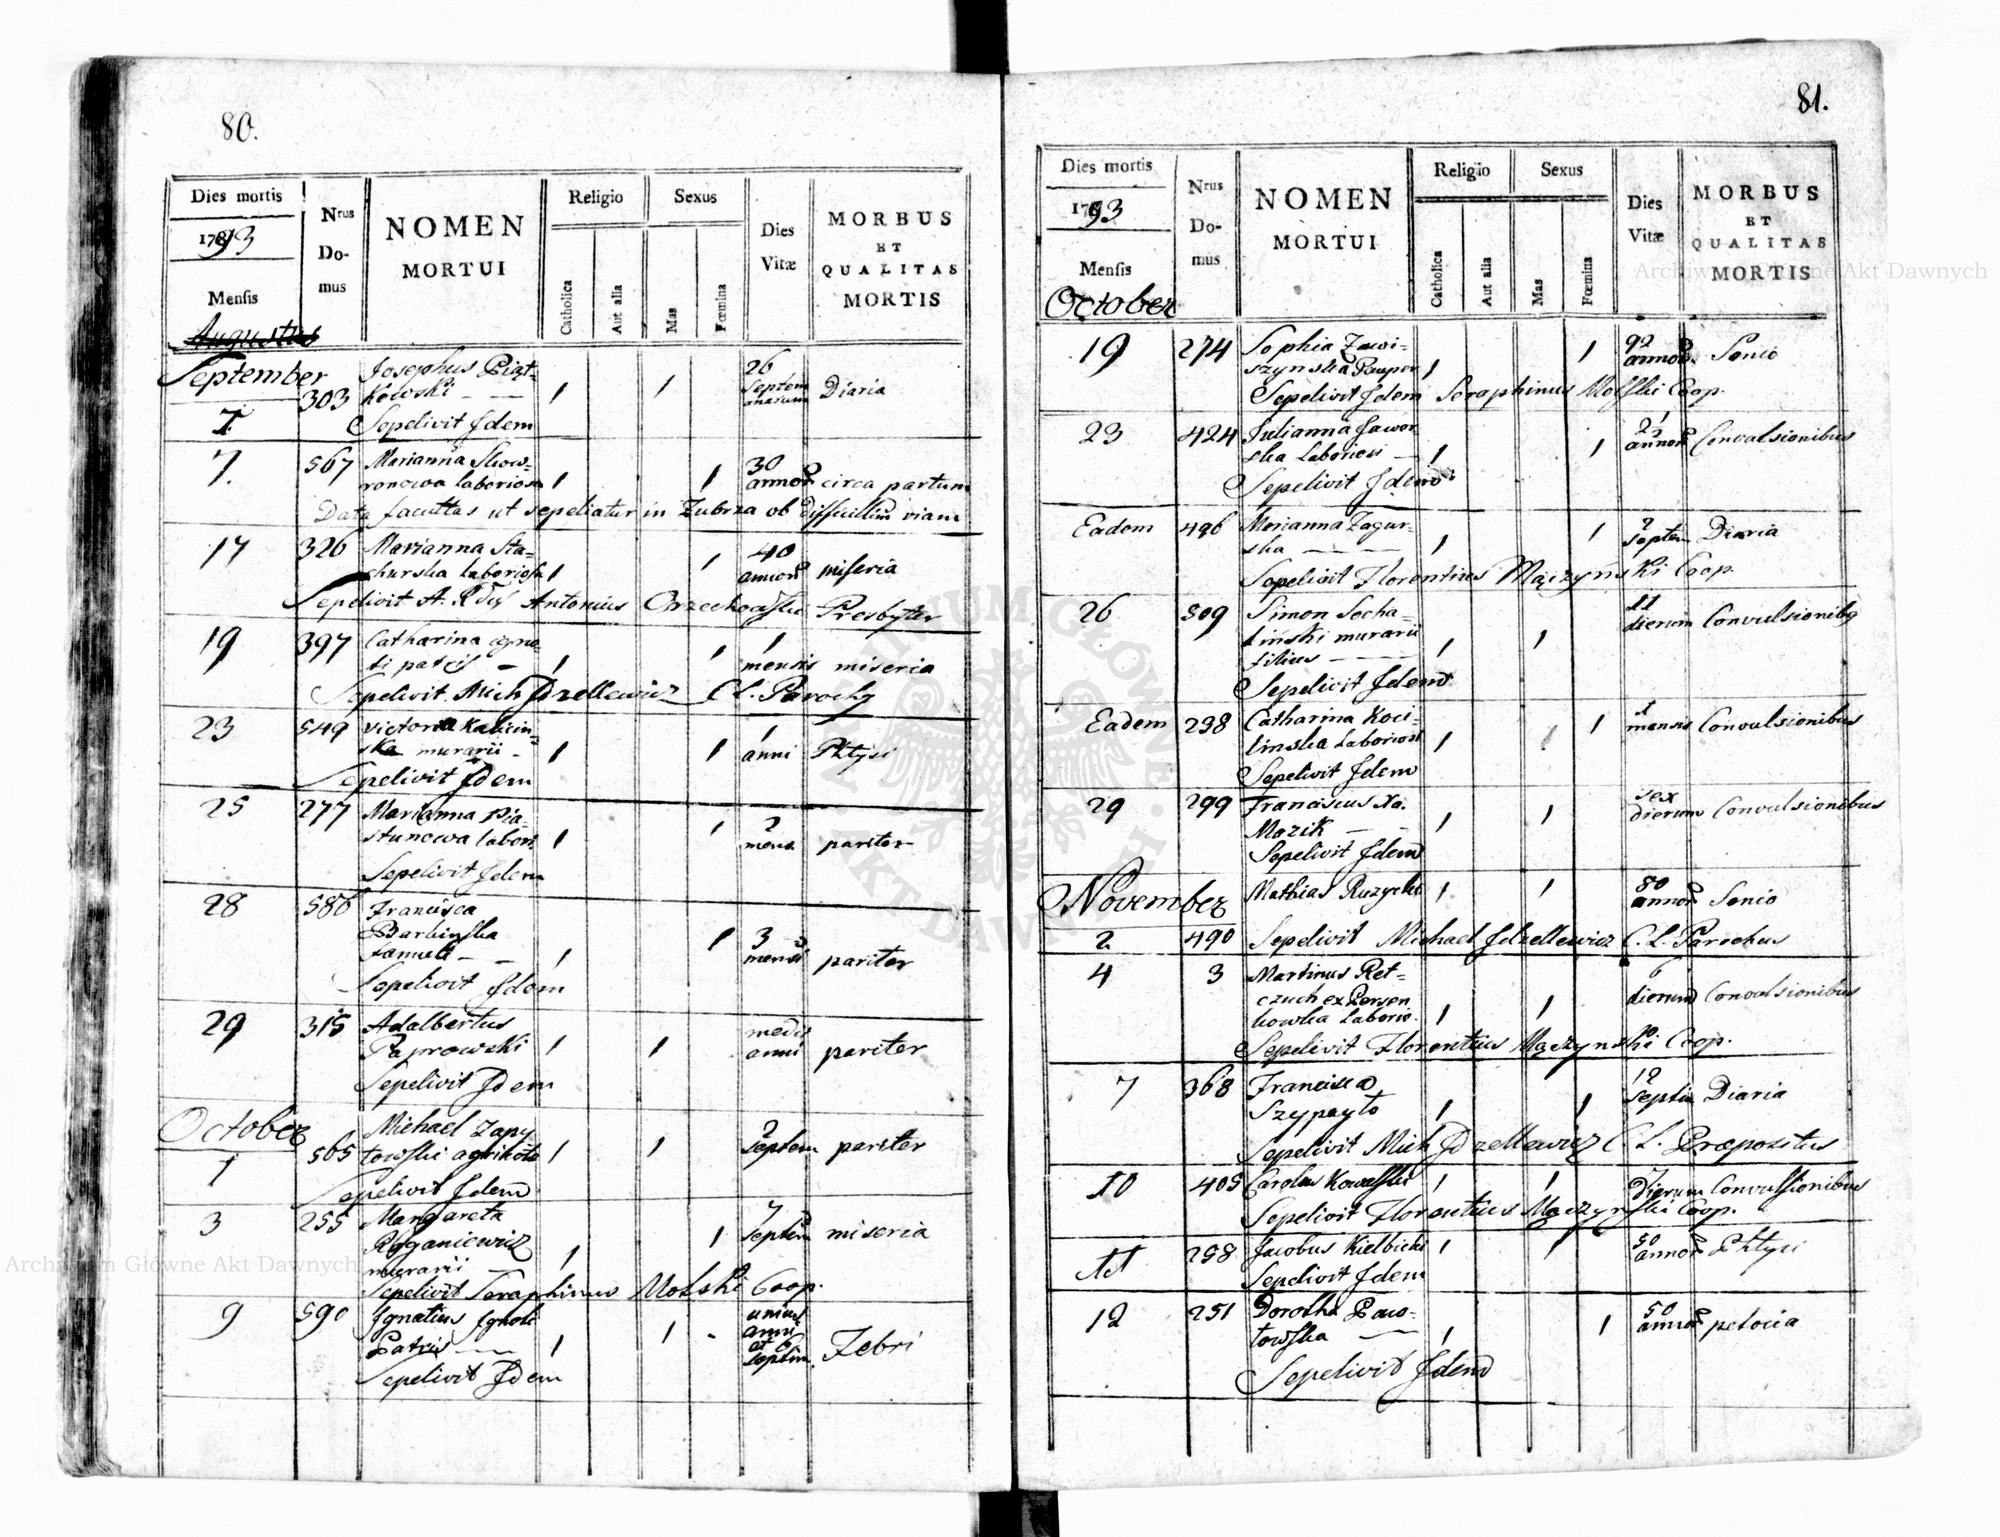 80.
Dies mortis
1793
Mensis
Augustus
Nrus
Do-
mus
NOMEN
MORTUI
Religio
Catholica
Aut alia
Sexus
Mas
Fœmina
Dies
Vitæ
MORBUS
ET
QUALITAS
MORTIS
September
1
303
Josephus Piąt-
kowski
1 1
26
Septem
anarum
Diaria
Sepelivit Idem
7.
567
Marianna Skow-
ronowa laboriosa
1 1
30
annor
circa partum
Data facultas ut sepeliatur in Zubrza ob difficillim viam
17
326
Marianna Sta-
churska laboriosa
1 1
40
annor
miseria
Sepelivit A. Rdus Antonius Orzechowski Presbyter
19
397
Catharina igno-
ti patris
1 1
1
mensis
miseria
Sepelivit Mich Idzellewicz C. L. Parochus
23
549
Victoria Kalicin-
ska murarii
1 1
1
anni
Phtysi
Sepelivit Idem
25
277
Marianna Pia-
stunowa labori
1 1
2
mens
pariter
Sepelivit Idem
28
586
Francisca
Barbinska
famuli
1 1
3
mensi
pariter
Sepelivit Idem
29
315
Adalbertus
Paprowski
1 1
medii
anni
pariter
Sepelivit Idem
October
1
565
Michael Zapy
towski agricola
1 1
2
septem
pariter
Sepelivit Idem
3
255
Margareta
Roganiewicz
murarii
1 1
7
septem
miseria
Sepelivit Seraphinus Molski Coop.
9
590
Ignatius Ignoti
Patris
1 1
unius
anni
et 6
septim.
Febri
Sepelivit Idem
81.
Dies mortis
1793
Mensis
October
Nrus
Do-
mus
NOMEN
MORTUI
Religio
Catholica
Aut alia
Sexus
Mas
Fœmina
Dies
Vitæ
MORBUS
ET
QUALITAS
MORTIS
19
274
Sophia Zawi-
szynska Pauper
1 1
92
annor
Senio
Sepelivit Idem Seraphinus Molski Coop.
23
424
Julianna Jawor-
ska Laboriosi
1 1
annor
Convulsionibus
Sepelivit Idem
Eadem
496
Marianna Zagur-
ska
1 1
2
septem
Diaria
Sepelivit Florentius Mączynski Coop.
26
509
Simon Socha-
linski murarii
filius
1 1
11
dierum
Convulsionibq
Sepelivit Idem
Eadem
298
Catharina Koci-
linska Laboriosi
1 1
1
mensis
Convulsionibus
Sepelivit Idem
29
299
Franciscus Xa.
Mazik
1 1
sex
dierum
Convulsionibus
Sepelivit Idem
November
2
490
Mathias Ruzycki
1 1
80
annor
Senio
Sepelivit Michael Idzellewicz C. L. Parochus
4
3
Martinus Ret-
czuch ex Persen
kowka Laborio.
1 1
6
dierum
Convulsionibus
Sepelivit Florentius Mączynski Coop.
7
368
Francisca
Szypayło
1 1
12
septim
Diaria
Sepelivit Mich Idzellewicz C. L. Præpozitus
10
405
Carolus Kowalski
1 1
7
Dierum
Convulsionibus
Sepelivit Florentius Mączynski Coop.
11
258
Jacobus Kielbicki
1 1
50
annor
Phtysi
Sepelivit Idem
12
251
Dorotha Pawo-
towska
1 1
50
annor
petocia
Sepelivit Idem
Archiwum Główne Akt Dawnych
Archiwum Główne Akt Dawnych
ARCHIWUM GŁÓWNE AKT DAWNYCH